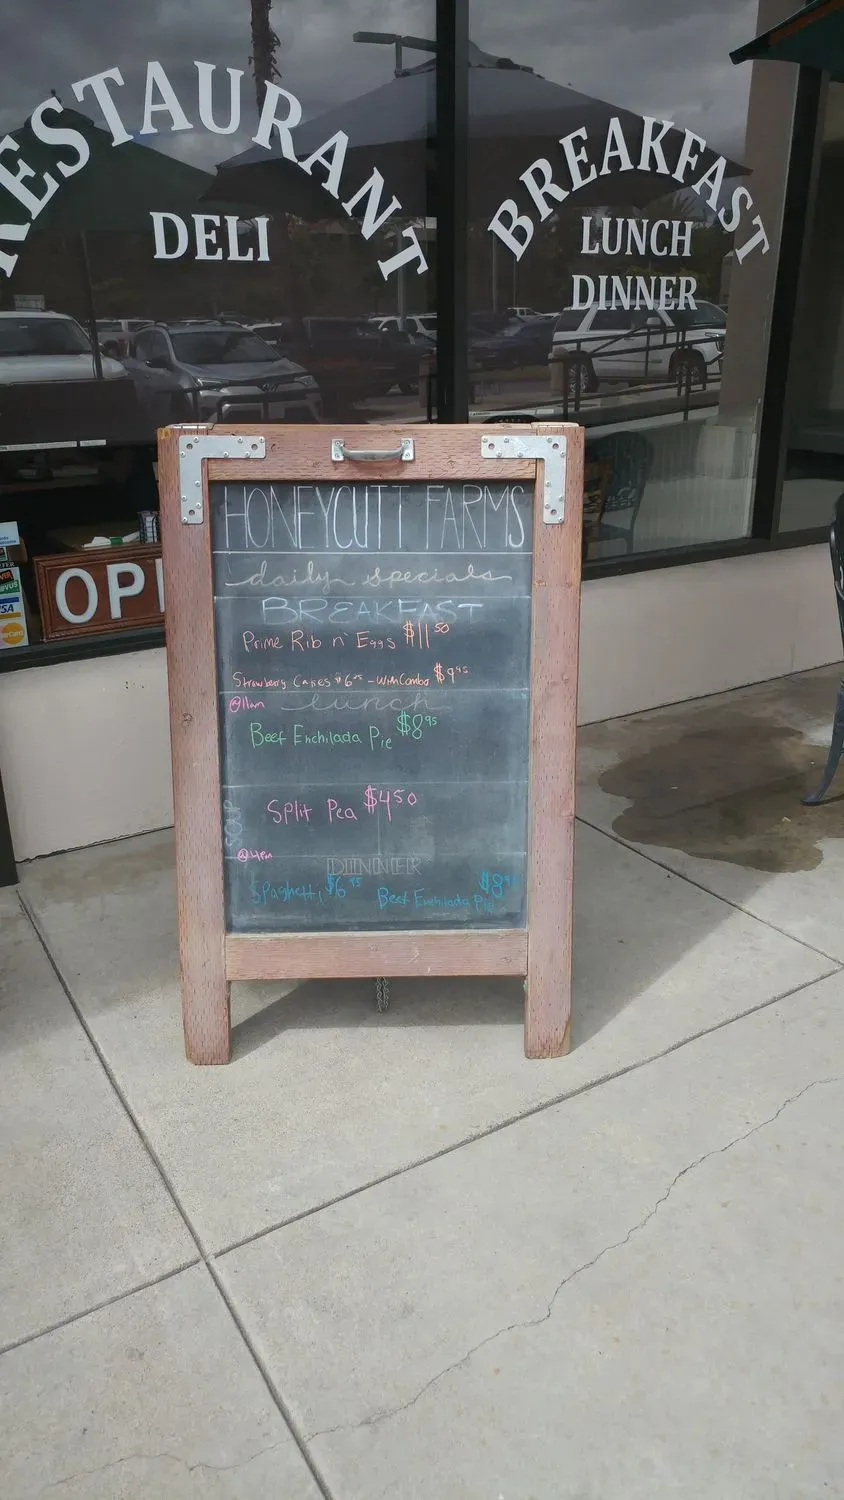 RESTAURANT
DELI
BREAKFAST
LUNCH
DINNER
OP
VISA
HONEYCUTT FARMS
daily specials
BREAKFAST
Prime Rib n' Eggs $11.50
Strawberry Cakes $6.95 - With Combo $9.95
@11am lunch
Beef Enchilada Pie $8.95
SOUP
Split Pea $4.50
@4pm
DINNER
Spaghetti $6.95 Beef Enchilada Pie $8